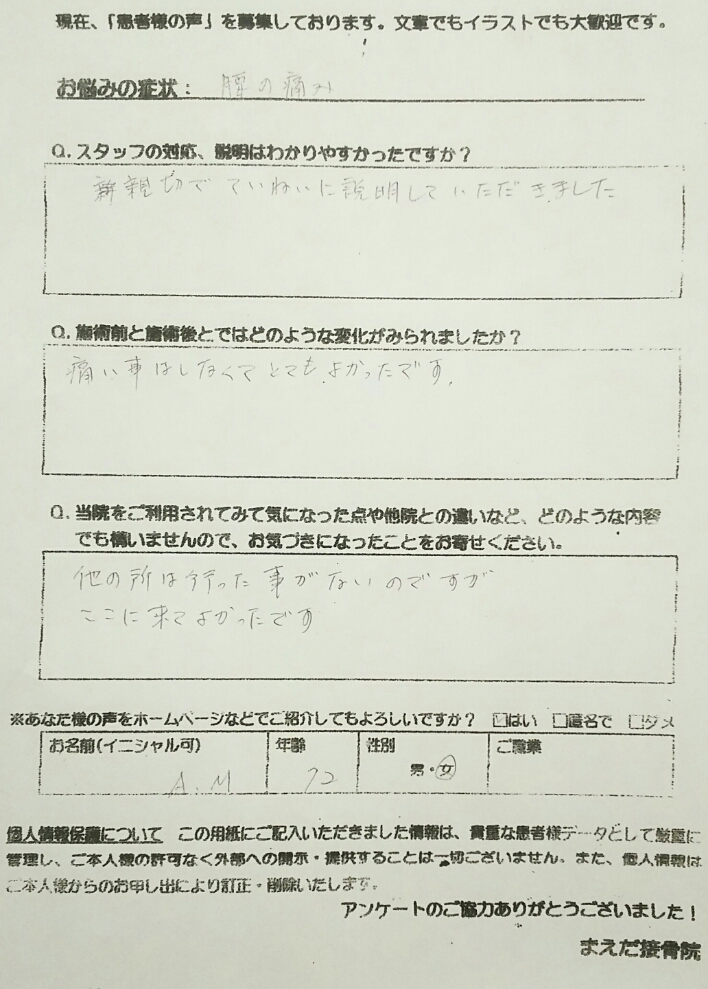 現在、「患者様の声」を募集しております。文章でもイラストでも大歓迎です。
お悩みの症状： 腰の痛み
Q. スタッフの対応、説明はわかりやすかったですか？
親切でていねいに説明していただきました
Q. 施術前と施術後とではどのような変化がみられましたか？
痛い事はしなくてとてもよかったです。
Q. 当院をご利用されてみて気になった点や他院との違いなど、どのような内容
でも構いませんので、お気づきになったことをお寄せください。
他の所は行った事がないのですが
ここに来てよかったです
※あなた様の声をホームページなどでご紹介してもよろしいですか？ ☑はい □匿名で □ダメ
お名前(イニシャル可) 年齢 性別 ご職業
A.M 72 男・女
個人情報保護について この用紙にご記入いただきました情報は、貴重な患者様データとして厳重に
管理し、ご本人様の許可なく外部への開示・提供することは一切ございません。また、個人情報は
ご本人様からのお申し出により訂正・削除いたします。
アンケートのご協力ありがとうございました！
まえだ接骨院